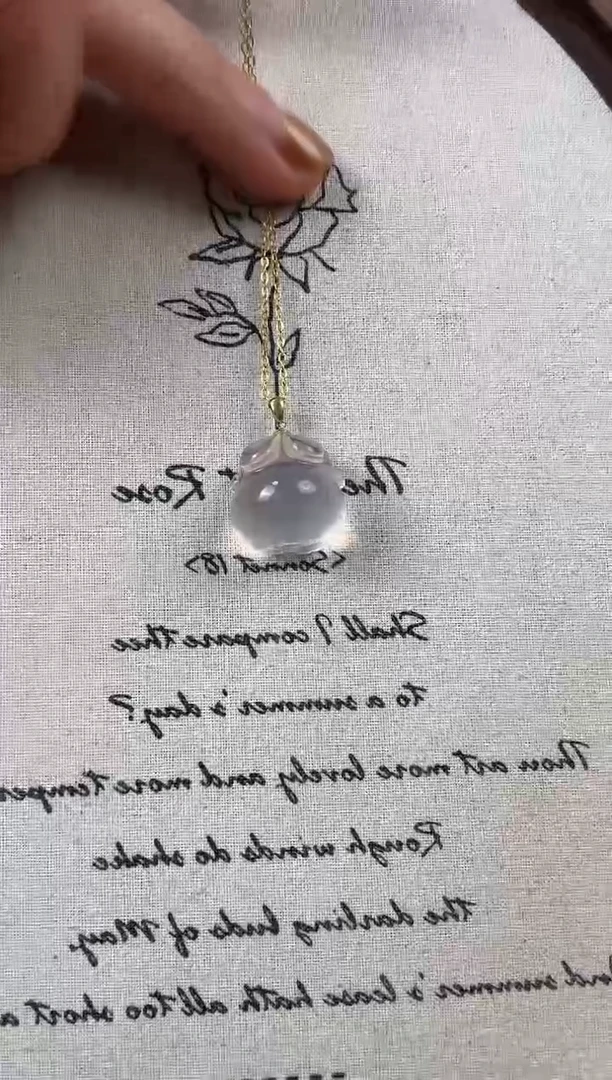 The Rose
<Sonnet 18>
Shall I compare thee
to a summer's day?
Thou art more lovely and more
Rough winds do shake
the darling buds of May,
summer's lease hath all too short a